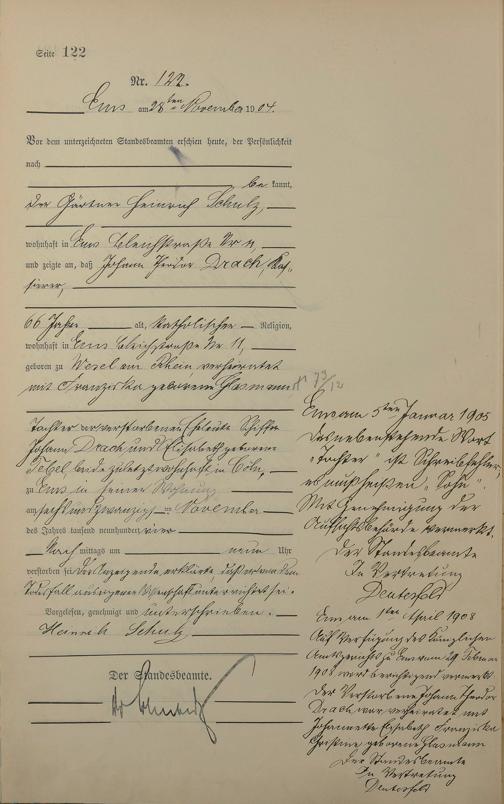 Seite 122
Nr. 122.
Ems am 28ten November 1904.
Vor dem unterzeichneten Standesbeamten erschien heute, der Persönlichkeit
nach
be kannt,
der Gärtner Heinrich Schulz,
wohnhaft in Ems Bleichstraße Nr 11,
und zeigte an, daß Johann Theodor Drach, Kas-
sierer,
66 Jahre alt, katholischer Religion,
wohnhaft in Ems Bleichstraße Nr. 11,
geboren zu Wesel am Rhein, verheiratet
mit Franziska geborene Glasmann
Tochter der verstorbenen Eheleute Schiffer
Johann Drach und Elisabeth geborene
beide zuletzt wohnhaft in Cöln,
zu Ems in seiner Wohnung
am sechsundzwanzigsten November
des Jahres tausend neunhundert vier
Vor mittags um neun Uhr
verstorben sei. Der Anzeigende erklärte, daß er von dem
Todesfall aus eigener Wissenschaft unterrichtet sei.
Vorgelesen, genehmigt und unterschrieben.
Heinrich Schulz
Der Standesbeamte.
Ems am 5ten Januar 1905
Das nebenstehende Wort
"Tochter" ist Schreibfehler,
es muß heißen "Sohn".
Mit Genehmigung der
Aufsichtsbehörde vermerkt.
Der Standesbeamte
In Vertretung
Deutesfeld
Ems am 1ten April 1908
Auf Verfügung des Königlichen
Amtsgerichts zu Ems vom 29 Februar
1908 wird berichtigend vermerkt
Der Verstorbene Johann Theodor
Drach war verheiratet mit
Johannette Elisabeth Franziska
Christine geborene Glasmann
Der Standesbeamte
In Vertretung
Deutesfeld